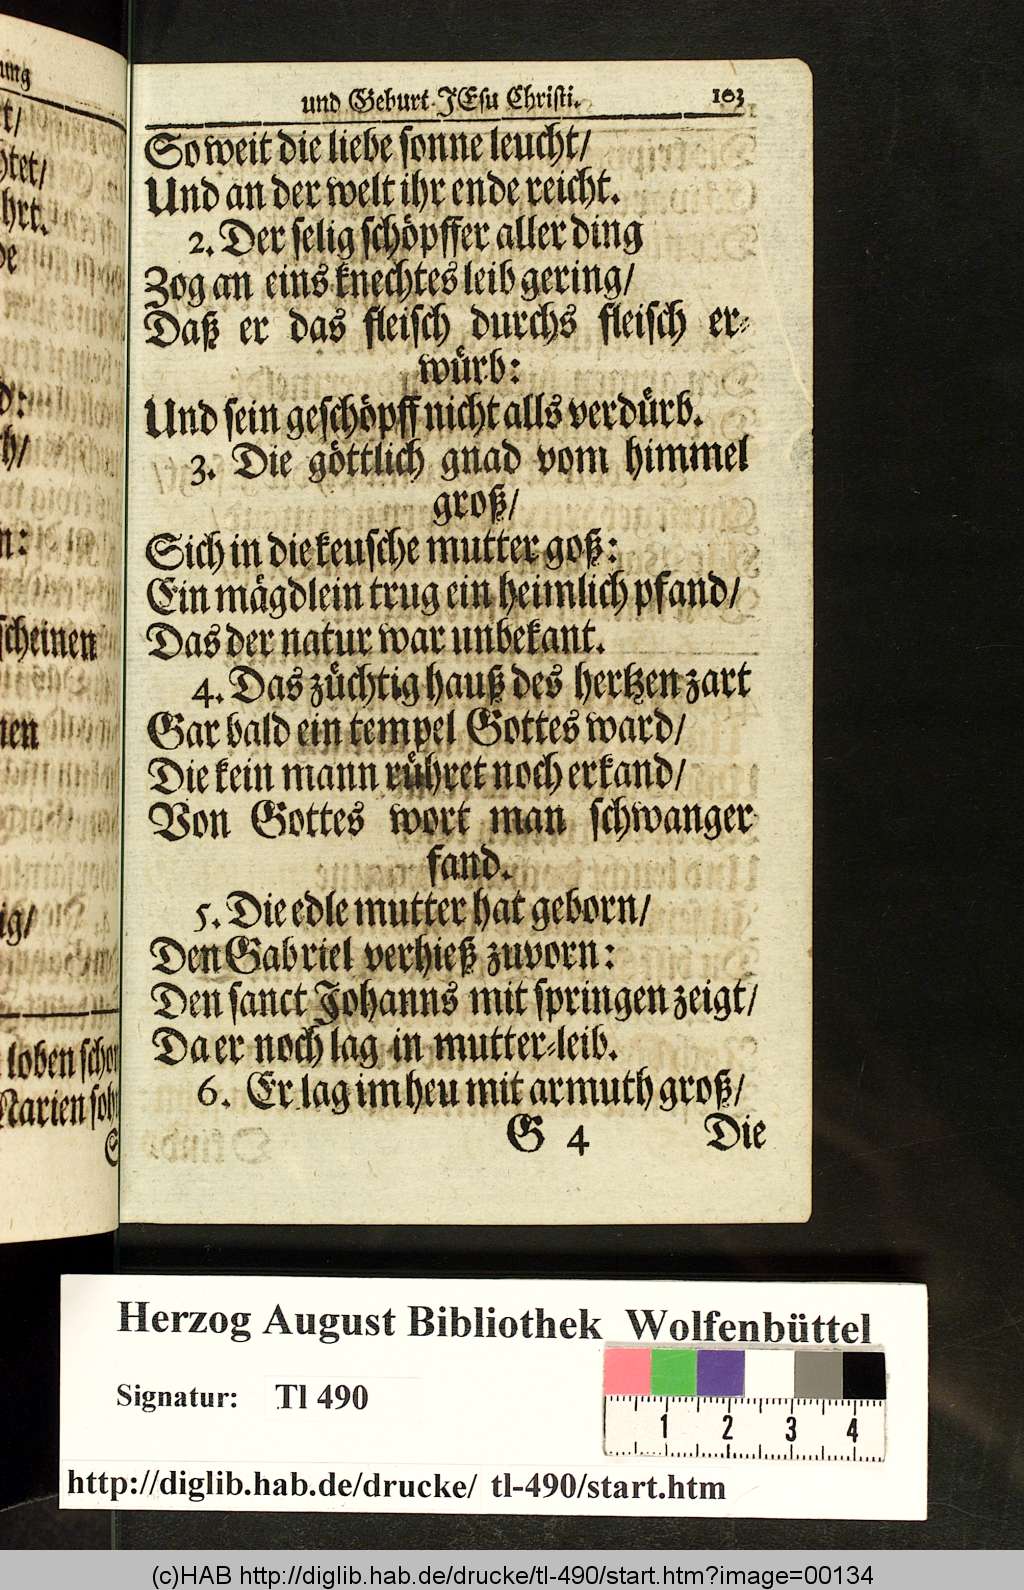 und Geburt JEsu Christi. 103
So weit die liebe sonne leucht/
Und an der welt ihr ende reicht.
2. Der selig schöpffer aller ding
Zog an eins knechtes leib gering/
Daß er das fleisch durchs fleisch er-
würb:
Und sein geschöpff nicht alls verdürb.
3. Die göttlich gnad vom himmel
groß/
Sich in die keusche mutter goß:
Ein mägdlein trug ein heimlich pfand/
Das der natur war unbekant.
4. Das züchtig hauß des hertzen zart
Gar bald ein tempel Gottes ward/
Die kein mann rühret noch erkand/
Von Gottes wort man schwanger
fand.
5. Die edle mutter hat geborn/
Den Gabriel verhieß zuvorn:
Den sanct Johanns mit springen zeigt/
Da er noch lag in mutter-leib.
6. Er lag im heu mit armuth groß/
G 4 Die
Herzog August Bibliothek Wolfenbüttel
Signatur: Tl 490
1 2 3 4
http://diglib.hab.de/drucke/ tl-490/start.htm
(c)HAB http://diglib.hab.de/drucke/tl-490/start.htm?image=00134